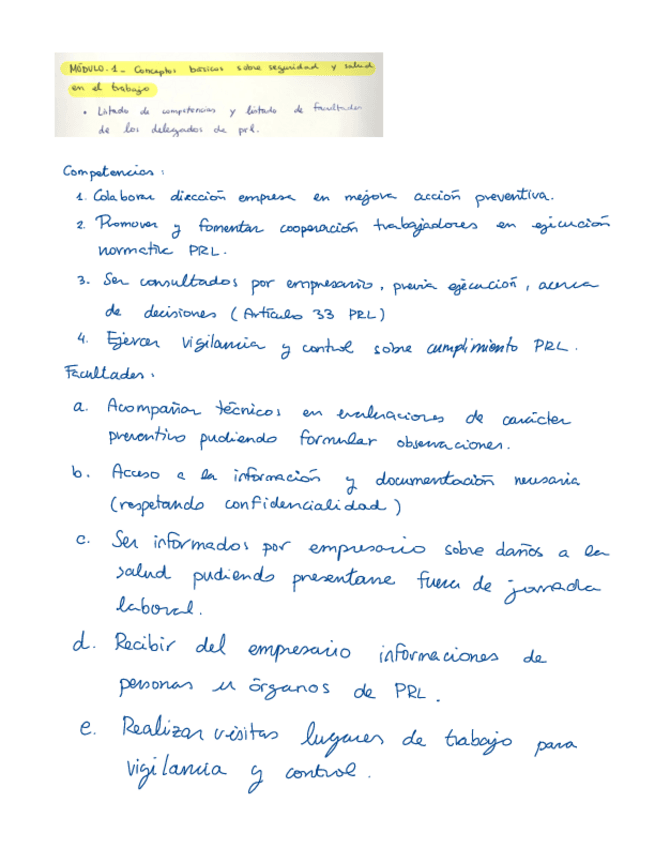 MÓDULO-1- Conceptos básicos sobre seguridad y salud
en el trabajo
• Listado de competencias y listado de facultades
de los delegados de prl.
Competencias:
1. Colaborar dirección empresa en mejora acción preventiva.
2. Promover y fomentar cooperación trabajadores en ejecución
normativa PRL.
3. Ser consultados por empresario, previa ejecución, acerca
de decisiones (Artículo 33 PRL)
4. Ejercer vigilancia y control sobre cumplimiento PRL.
Facultades:
a. Acompañar técnicos en evaluaciones de carácter
preventivo pudiendo formular observaciones.
b. Acceso a la información y documentación necesaria
(respetando confidencialidad)
c. Ser informados por empresario sobre daños a la
salud pudiendo presentarse fuera de jornada
laboral.
d. Recibir del empresario informaciones de
personas u órganos de PRL.
e. Realizar visitas lugares de trabajo para
vigilancia y control.